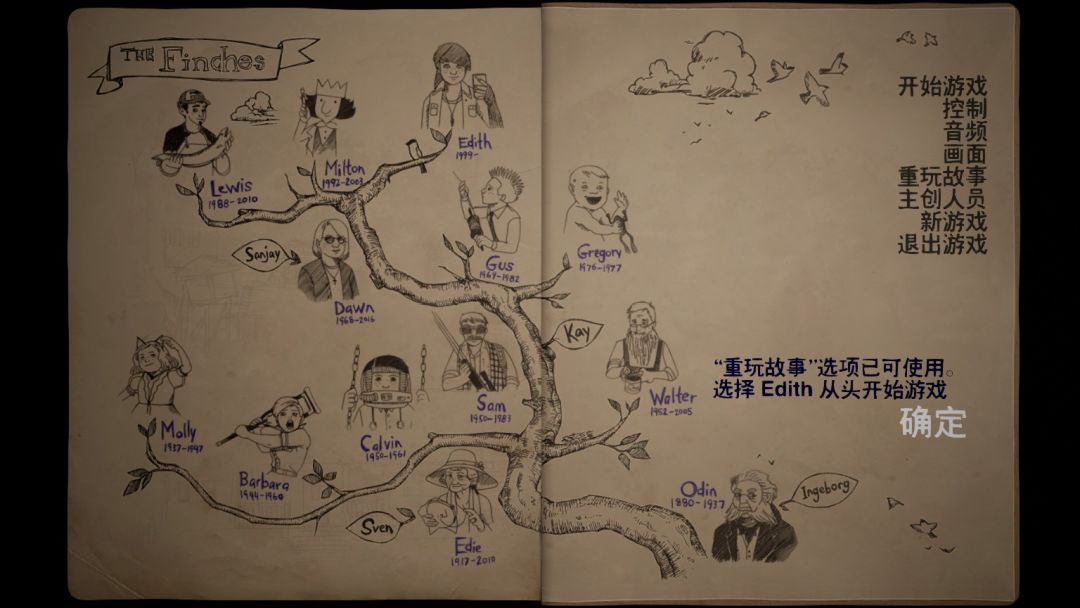 THE Finches
Lewis
1988-2010
Milton
1992-2003
Edith
1999-
Sanjay
Dawn
1968-2016
Gus
1969-1982
Gregory
1976-1977
Kay
Sam
1950-1983
Walter
1952-2005
Calvin
1950-1961
Molly
1937-1947
Barbara
1944-1960
Sven
Edie
1917-2010
Odin
1880-1937
Ingeborg
开始游戏
控制
音频
画面
重玩故事
主创人员
新游戏
退出游戏
“重玩故事”选项已可使用。
选择 Edith 从头开始游戏
确定